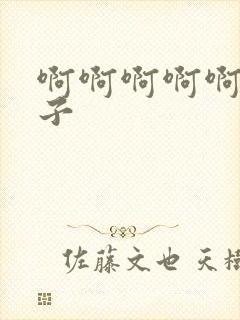 啊啊啊啊啊
子
佐藤文也 天樹